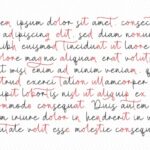 em ipsum dolor sit amet, consec
adipiscing elit, sed diam nonum
nibh euismod tincidunt ut laore
olore magna aliquam erat volut
t wisi enim ad minim veniam, q
trud exerci tation ullamcorper
cipit lobortis nisl ut aliquip ex
commodo consequat. Duis autem
m iriure dolor in hendrerit in v
utate velit esse molestie consequat